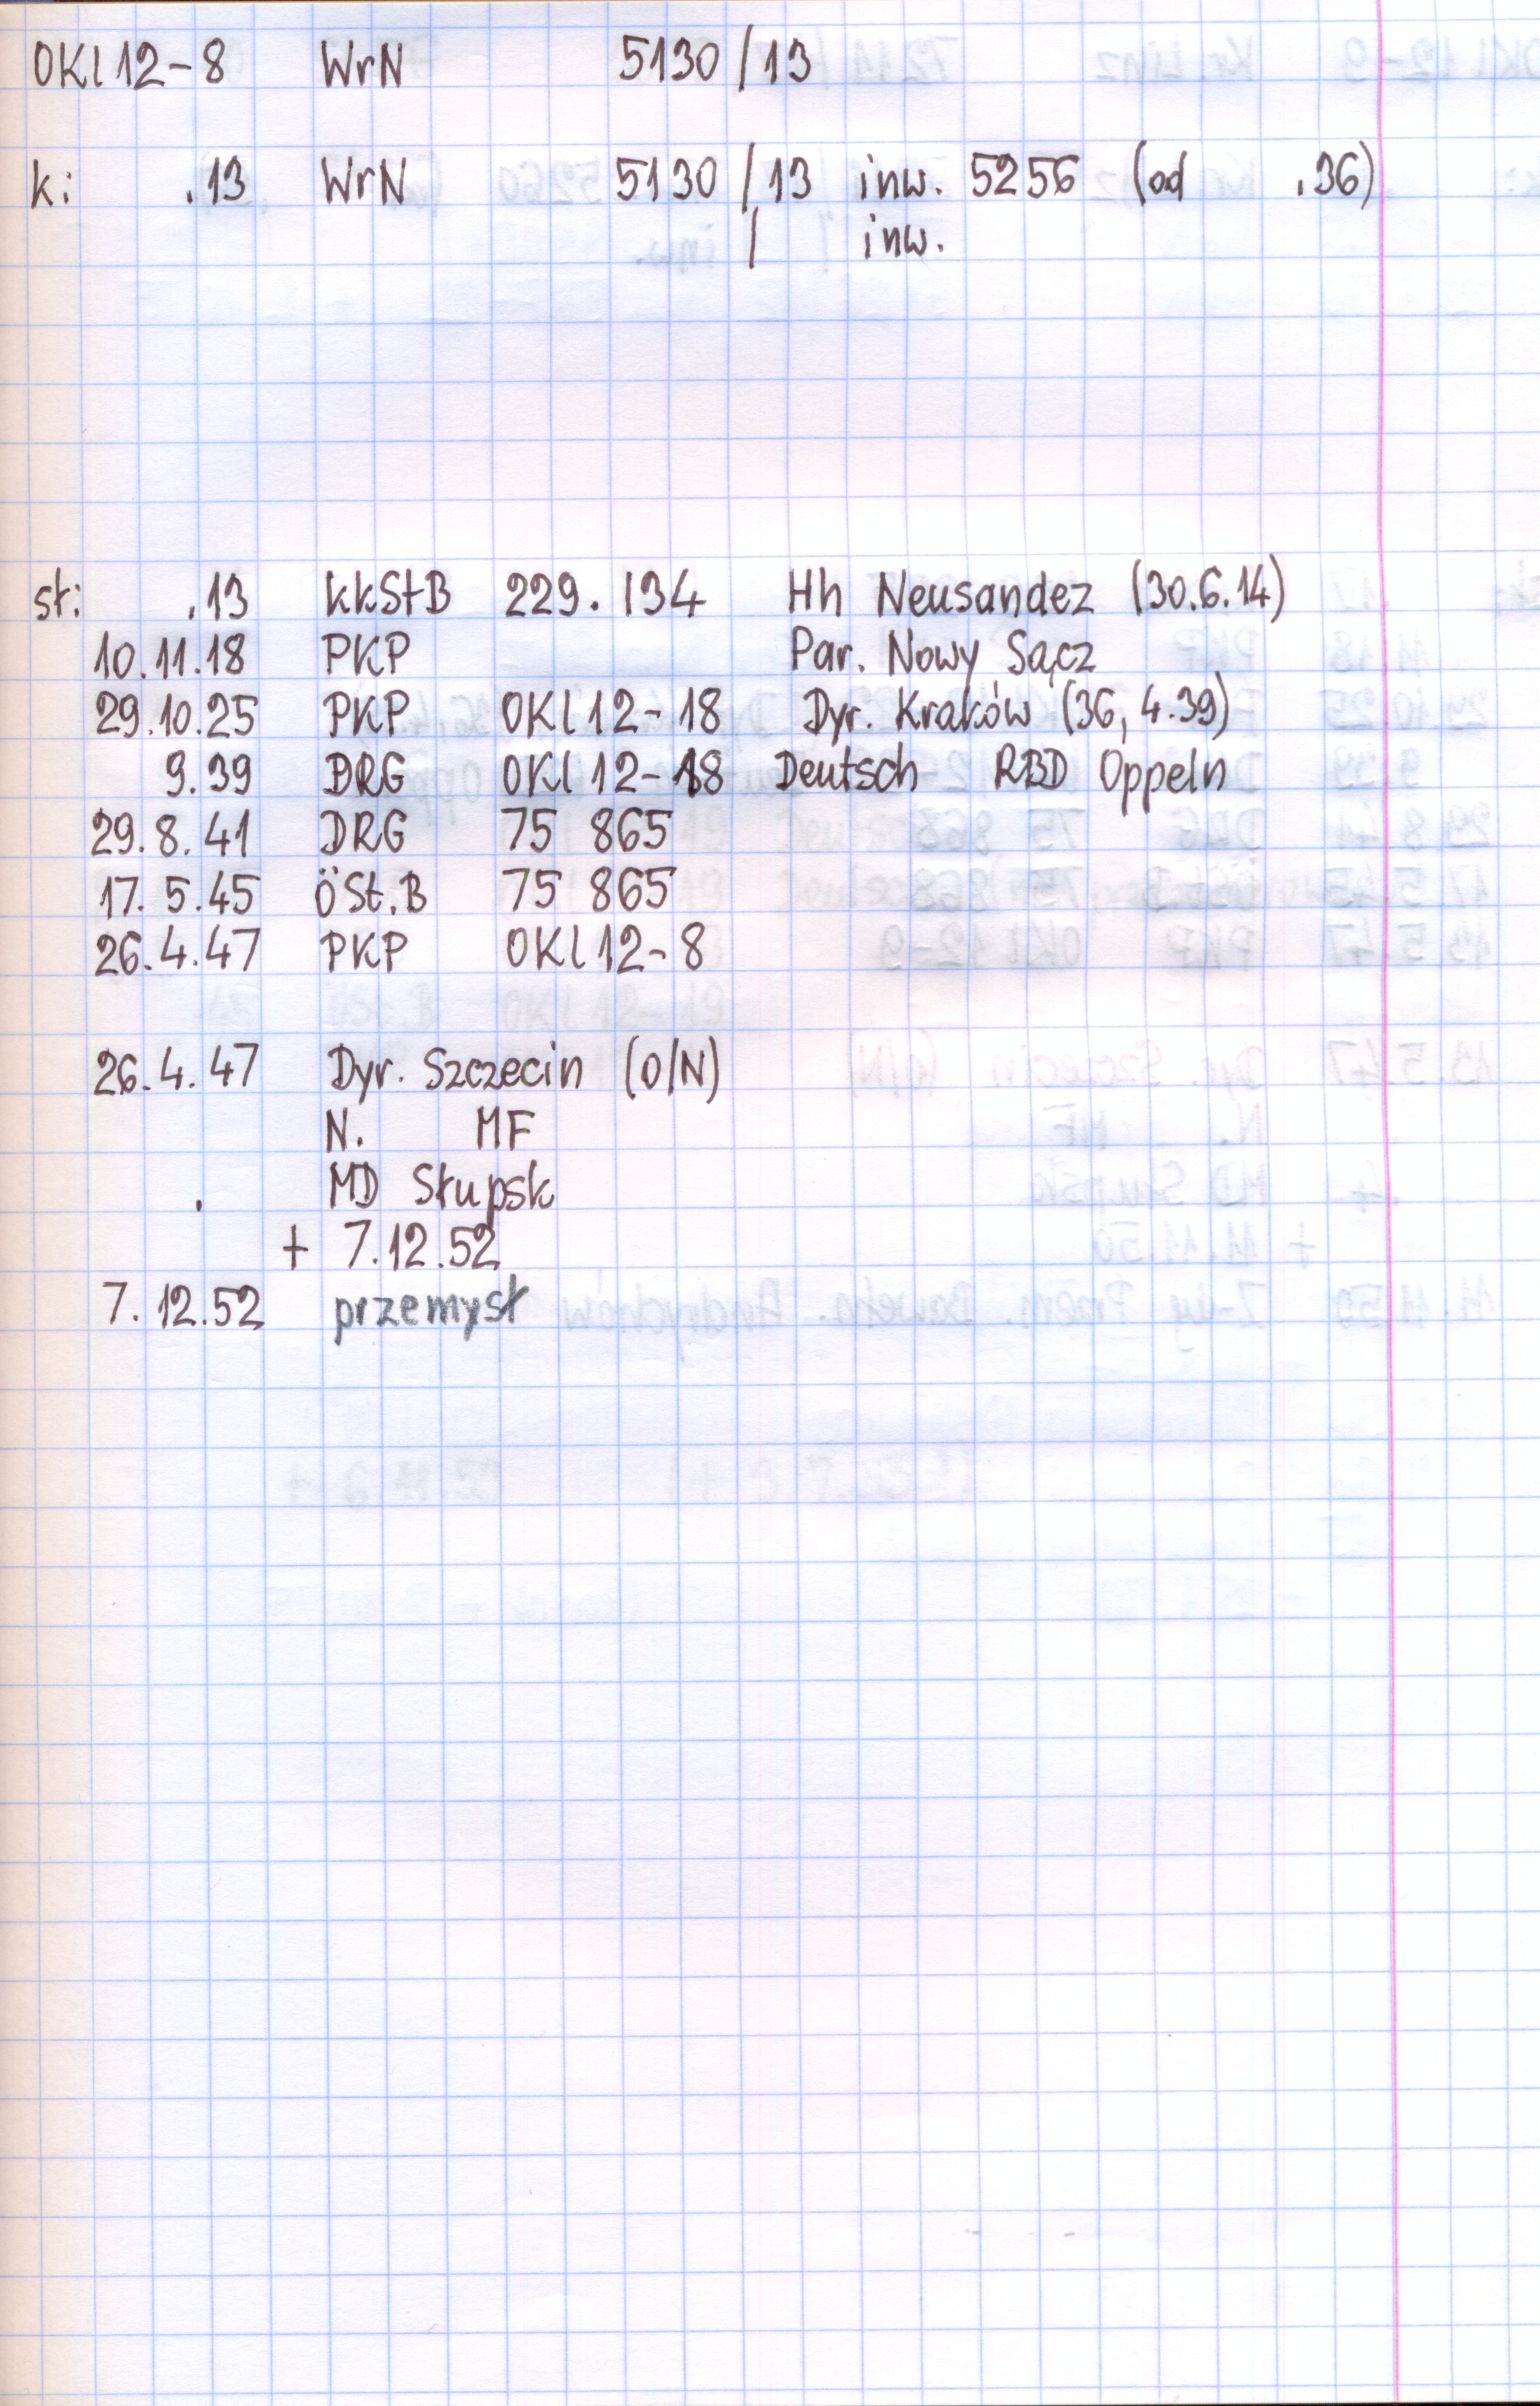 OKl 12-8 WrN 5130 / 13
k: .13 WrN 5130 / 13 inw. 5256 (od .36)
/ inw.
st: .13 kkStB 229.134 Hh Neusandez (30.6.14)
10.11.18 PKP Par. Nowy Sącz
29.10.25 PKP OKl 12-18 Dyr. Kraków (36, 4.39)
9.39 DRG OKl 12-18 Deutsch RBD Oppeln
29.8.41 DRG 75 865
17.5.45 ÖSt.B 75 865
26.4.47 PKP OKl 12-8
26.4.47 Dyr. Szczecin (O/N)
N. MF
. MD Słupsk
+ 7.12.52
7.12.52 przemysł